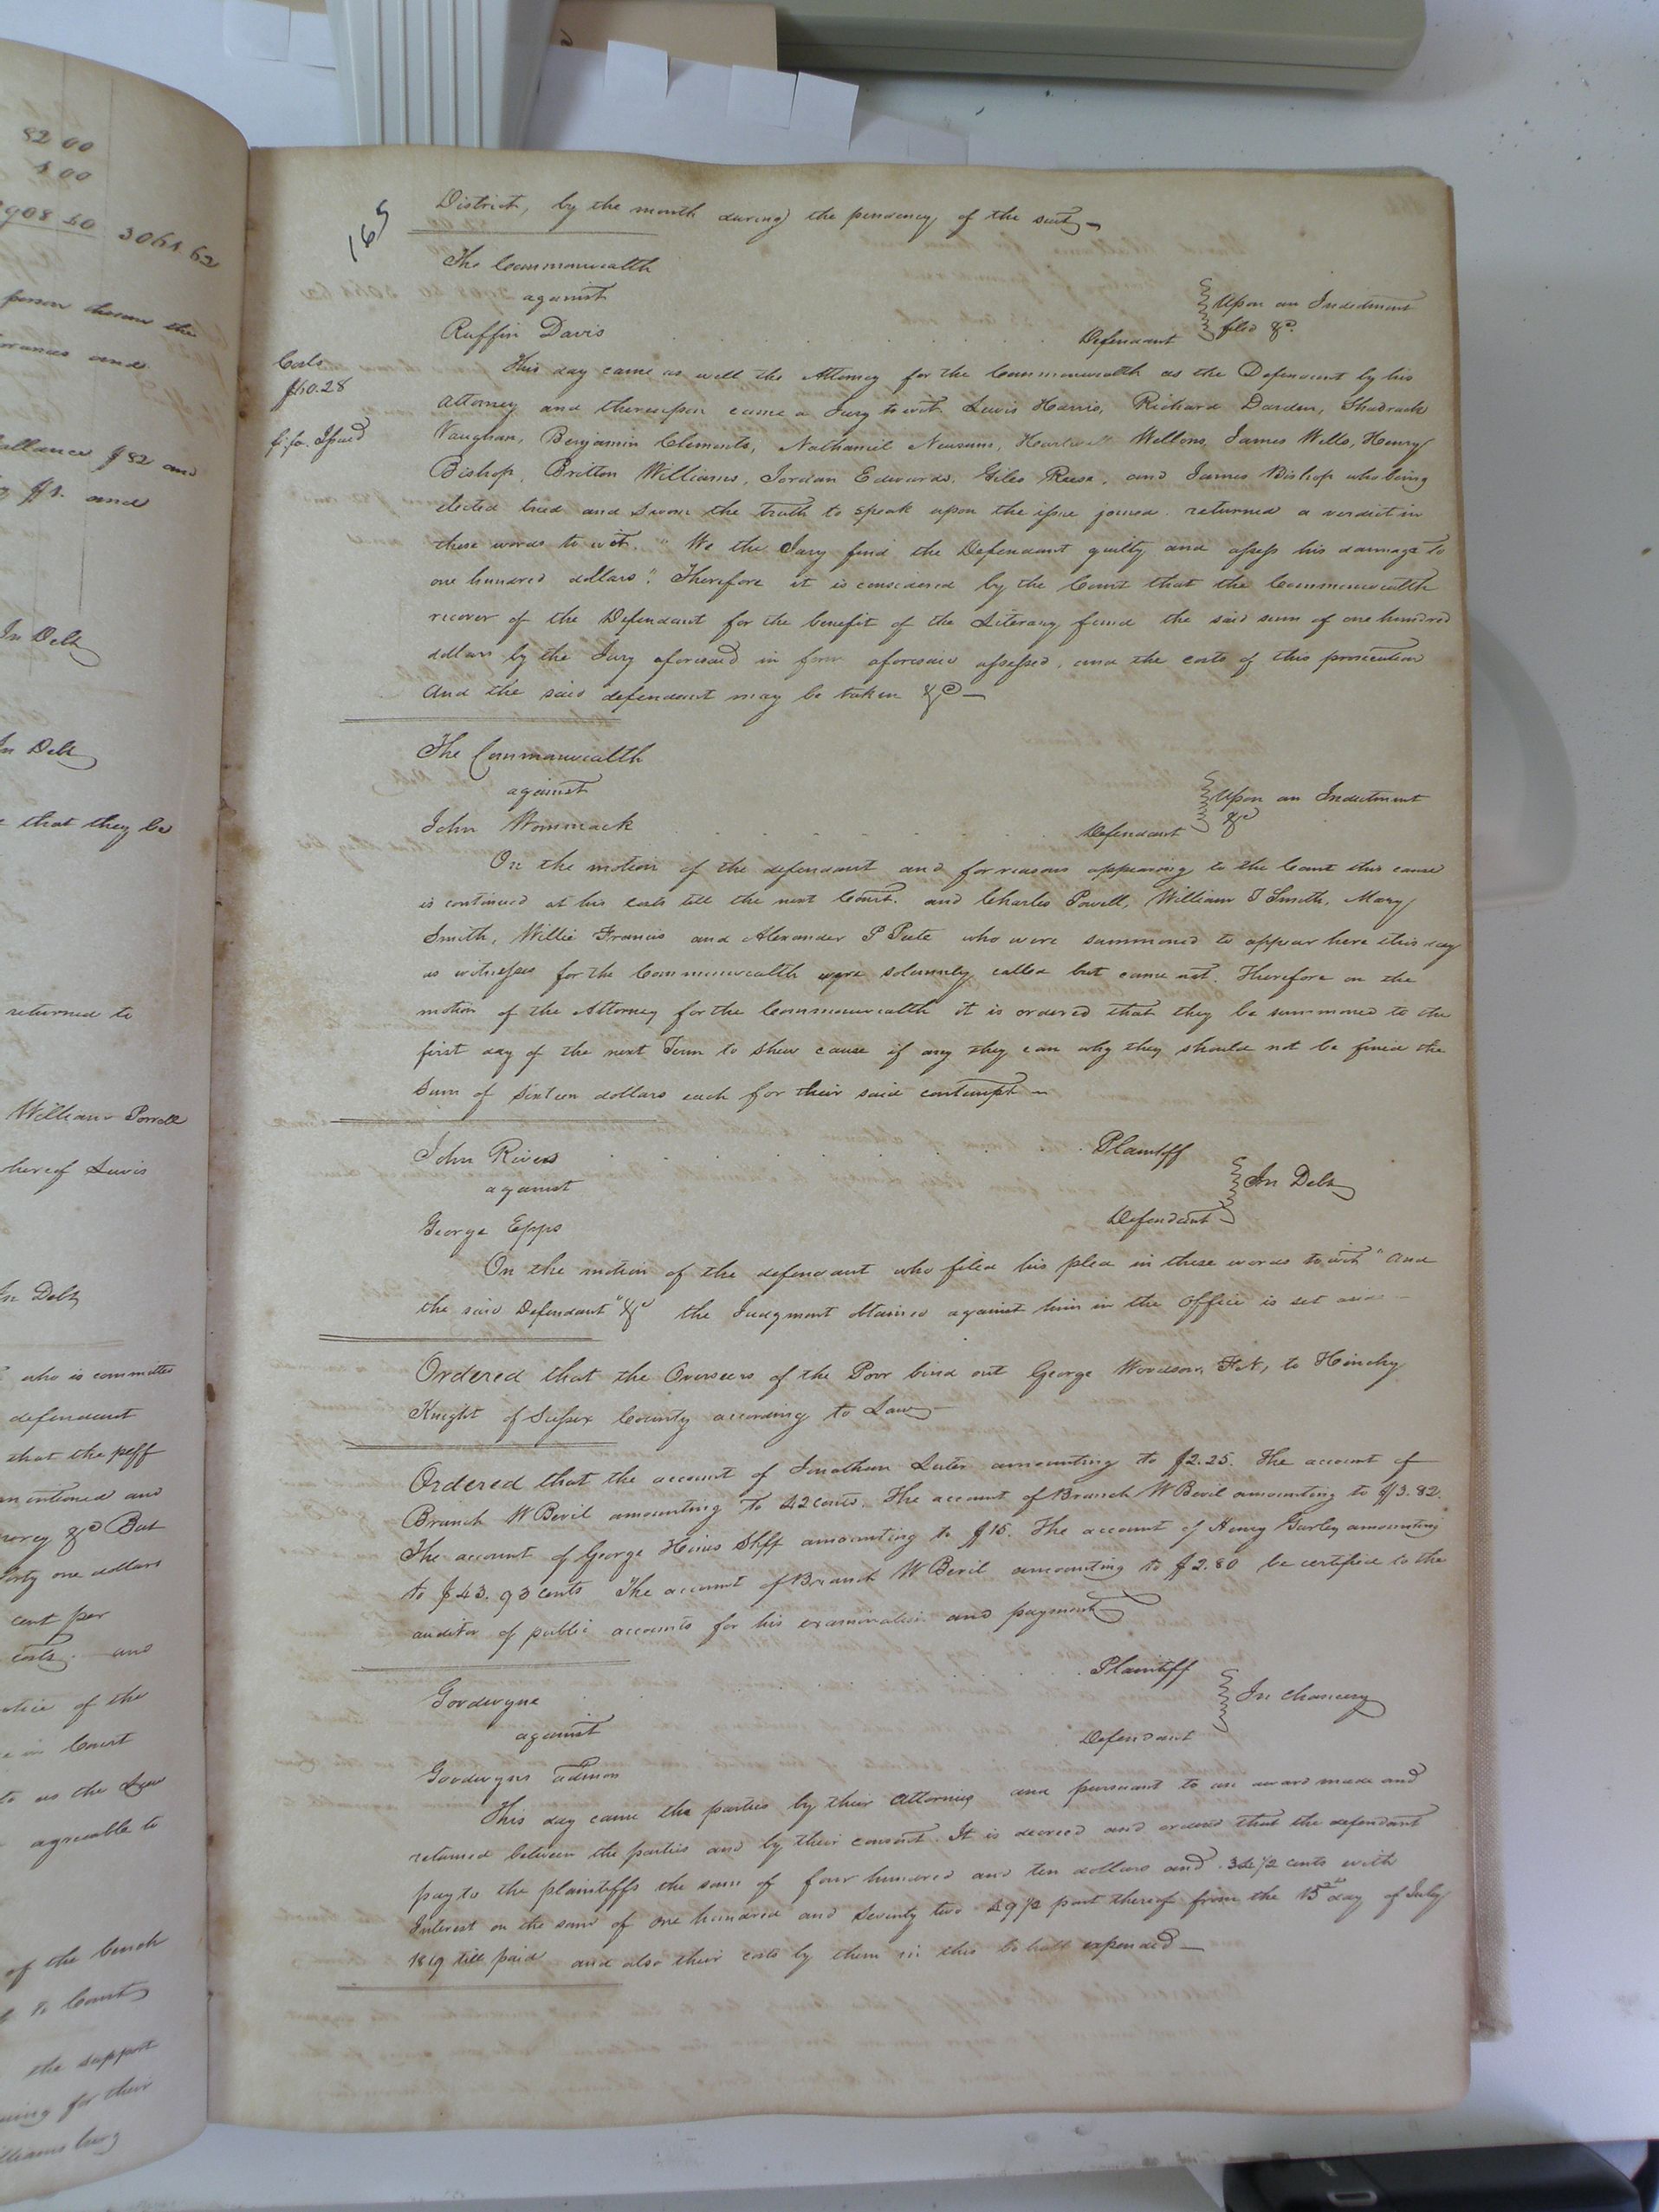 82 00
1 00
908 50 3061 62
person thereon the
and
allance $82 and
$1. and
In Debt
In Debt
that they be
returned to
William Powell
hereof Lewis
In Debt
who is committed
defendant
that the peff
mentioned and
mercy &c But
forty one dollars
cent per
costs. and
notice of the
in Court
as the Law
agreeable to
of the bench
to Court
the support
for their
Williamsburg
165
District, by the month during the pendency of the suit—
The Commonwealth
against
Ruffin Davis Defendant
Upon an Indictment
filed &c.
Costs
$60.28
fi fa. Issued
This day came as well the Attorney for the Commonwealth as the Defendant by his
attorney and thereupon came a Jury to wit Lewis Harris, Richard Darden, Shadrack
Vaughan, Benjamin Clements, Nathaniel Newsum, Hartwell Wellons, James Wells, Henry
Bishop, Britton Williams, Jordan Edwards, Giles Reese, and James Bishop who being
elected tried and Sworn the truth to speak upon the issue joined returned a verdict in
these words to wit. "We the Jury find the Defendant guilty and assess his damage to
one hundred dollars". Therefore it is considered by the Court that the Commonwealth
recover of the Defendant for the benefit of the Literary fund the said sum of one hundred
dollars by the Jury aforesaid in form aforesaid assessed, and the costs of this prosecution
And the said defendant may be taken &c—
The Commonwealth
against
John Wommack Defendant
Upon an Indictment
&c
On the motion of the defendant and for reasons appearing to the Court this cause
is continued at his costs till the next Court. and Charles Powell, William J Smith, Mary
Smith, Willie Francis and Alexander P Pete who were summoned to appear here this day
as witnesses for the Commonwealth were solemnly called but came not. Therefore on the
motion of the Attorney for the Commonwealth it is ordered that they be summoned to the
first day of the next Term to shew cause if any they can why they should not be fined the
Sum of Sixteen dollars each for their said contempt—
John Rives Plaintiff
against
In Debt
George Epps Defendant
On the motion of the defendant who filed his plea in these words to wit "And
the said Defendant" &c the Judgment obtained against him in the Office is set aside—
Ordered that the Overseers of the Poor bind out George Woodson, F.N, to Hinchy
Knight of Sussex County according to Law—
Ordered that the account of Jonathan Lister amounting to $2.25. The account of
Branch W Bevil amounting to 42 cents. The account of Branch W Bevil amounting to $3.82.
The account of George Hines Shff amounting to $15. The account of Henry Gurley amounting
to $43.93 cents The account of Branch W Bevil amounting to $2.80 be certified to the
auditor of public accounts for his examination and payment
Goodwyne Plaintiff
In Chancery
against
Goodwyns admon Defendant
This day came the parties by their attornies and pursuant to an award made and
returned between the parties and by their consent. It is decreed and ordered that the defendant
pay to the plaintiffs the sum of four hundred and ten dollars and 34½ cents with
Interest on the sum of one hundred and Seventy two 49½ part thereof from the 15 day of July
1819 till paid and also their costs by them in this behalf expended—